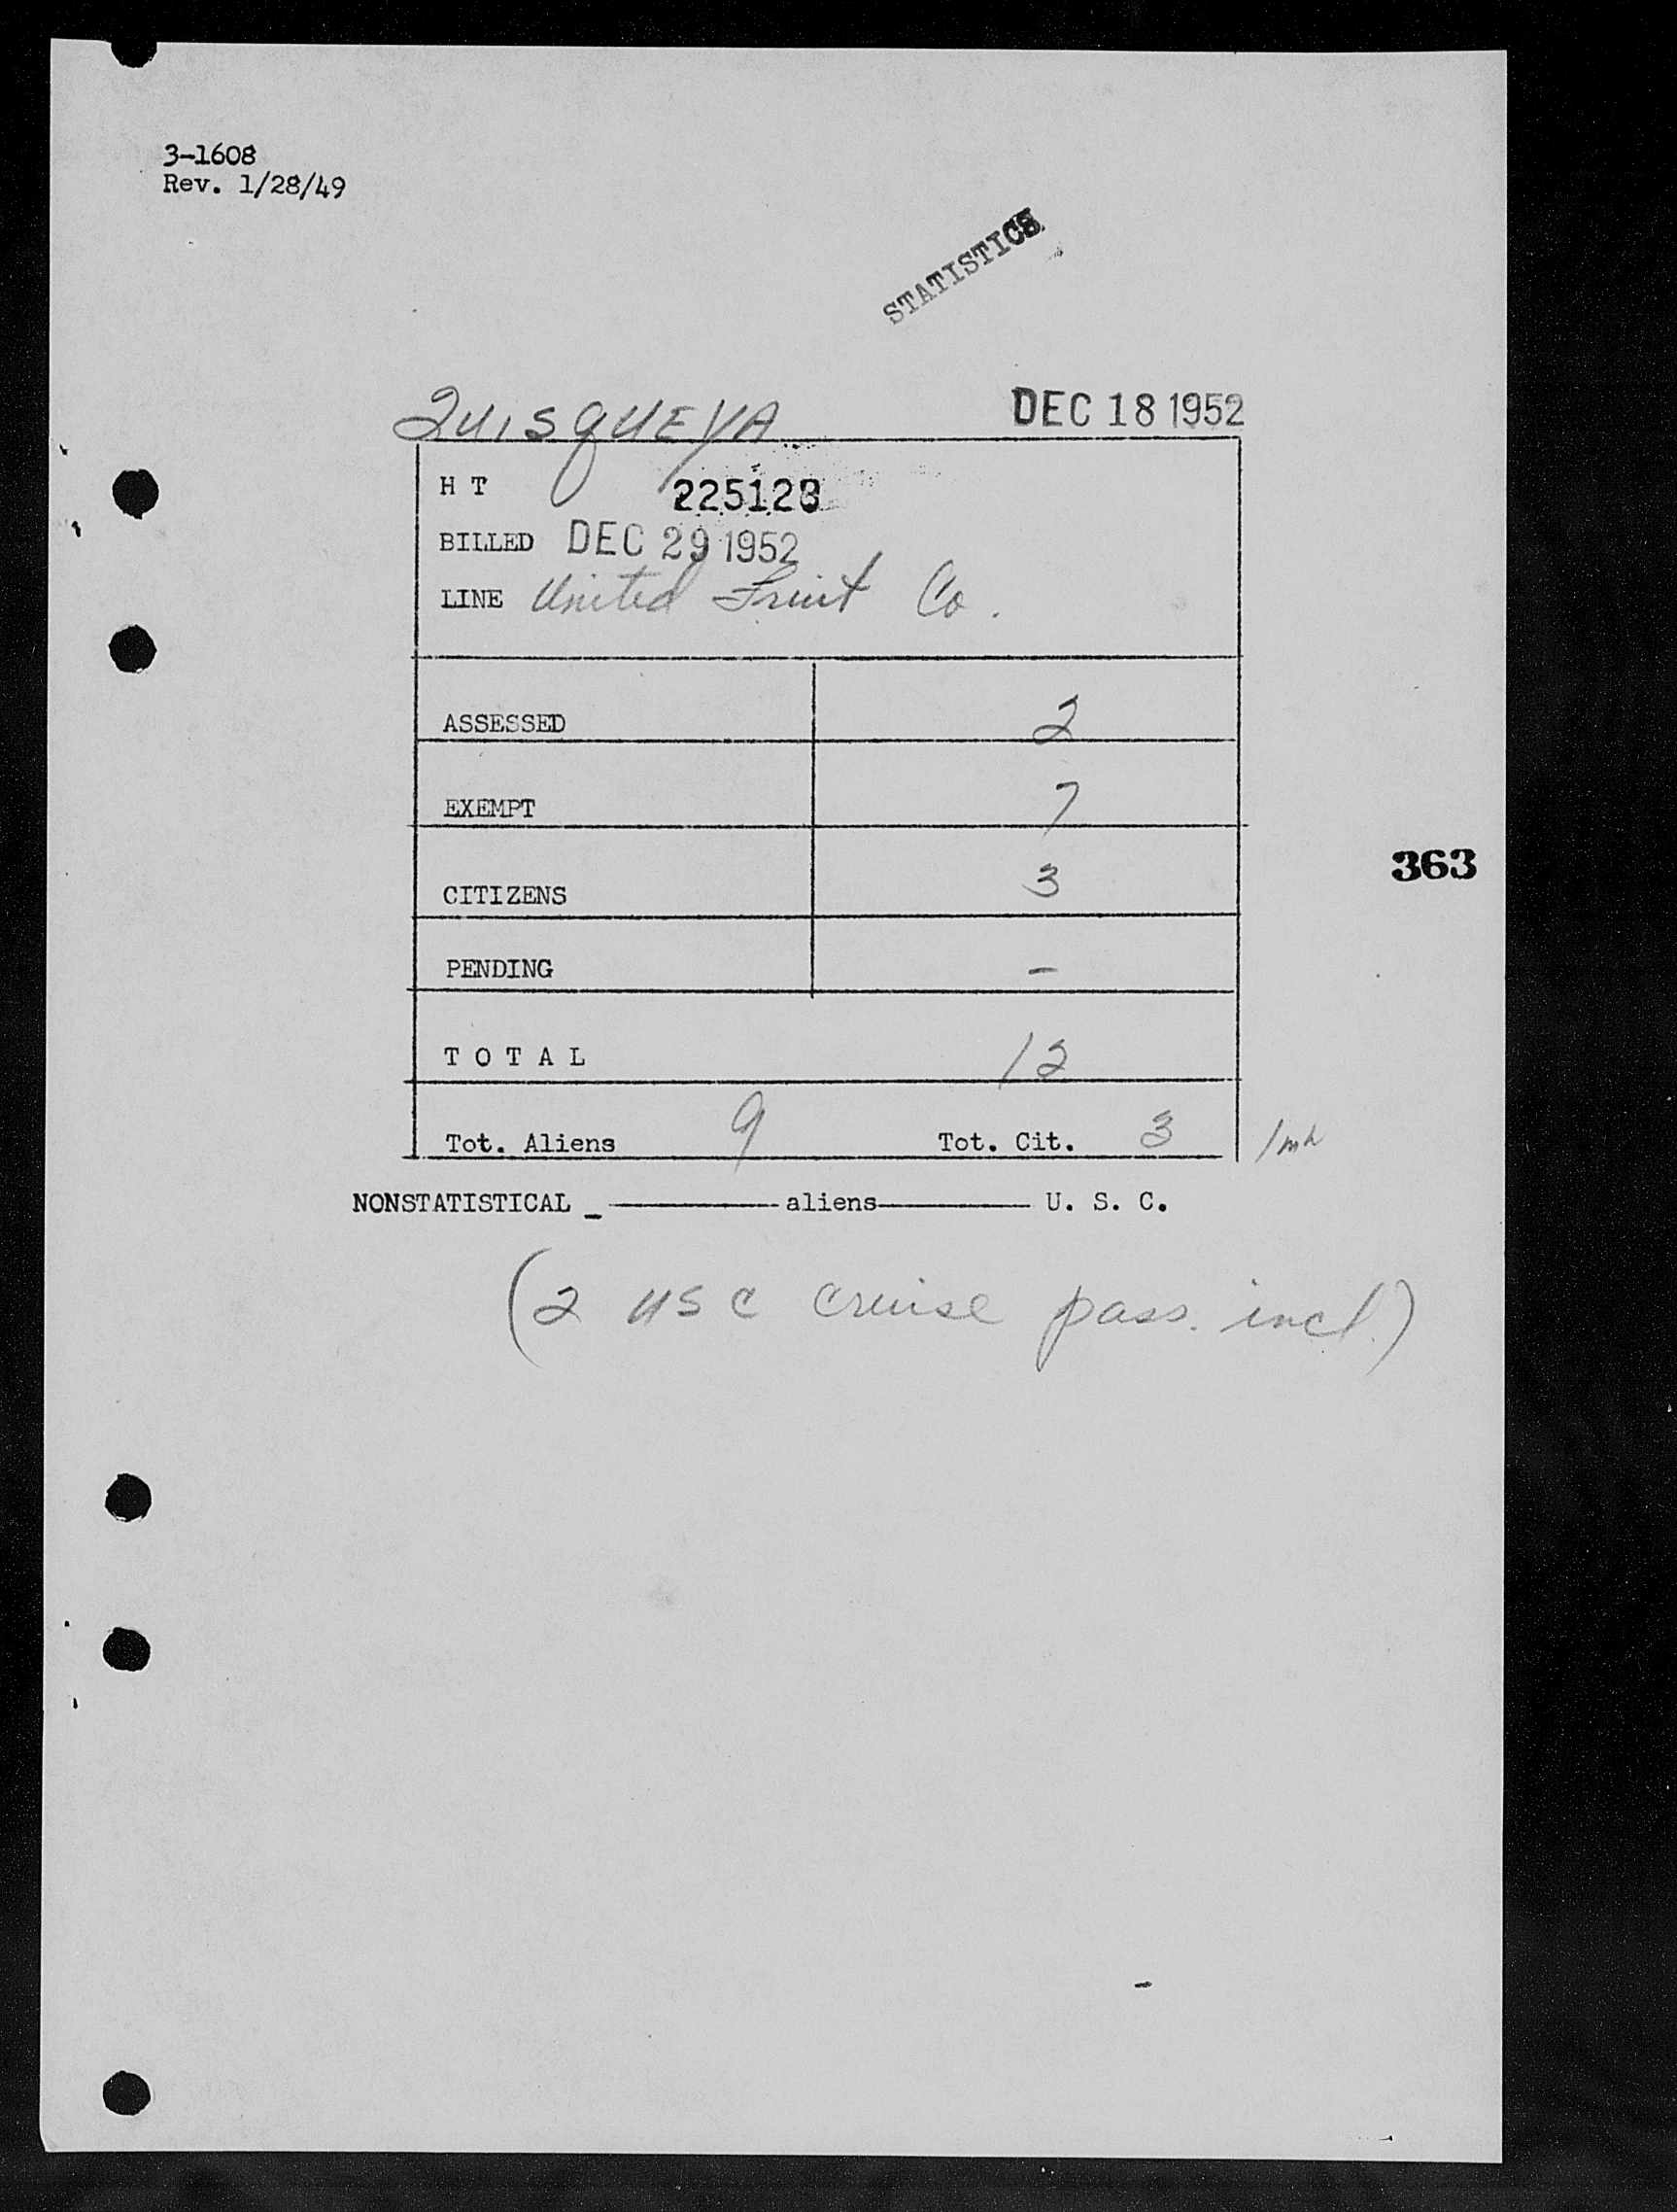 3-1608
Rev. 1/28/49
STATISTICS
QUISQUEYA DEC 18 1952
H T 225123
BILLED DEC 29 1952
LINE United Fruit Co.
ASSESSED 2
EXEMPT 7
363
CITIZENS 3
PENDING -
T O T A L 12
Tot. Aliens 9 Tot. Cit. 3 /mh
NONSTATISTICAL _ ———— aliens ———— U. S. C.
(2 USC cruise pass. incl.)